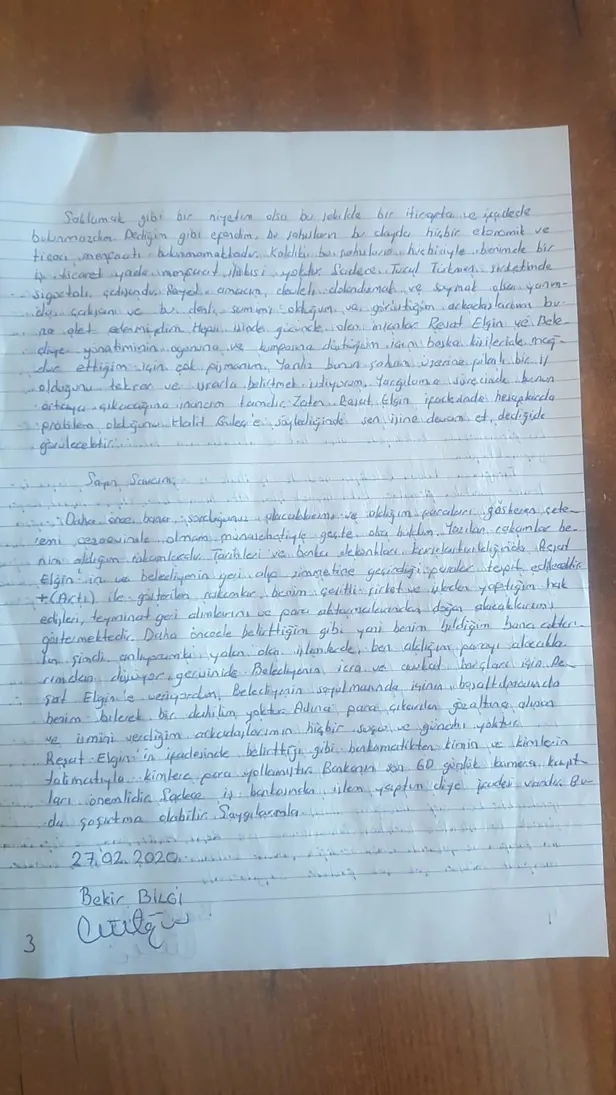 Saklamak gibi bir niyetim olsa bu şekilde bir itirafta ve ifadede
bulunmazdım. Dediğim gibi efendim, bu şahısların bu olayda hiçbir ekonomik ve
ticari menfaati bulunmamaktadır. Kaldıki bu şahısların hiçbiriyle benimde bir
iş ticaret yada menfaat ilişkisi yoktur. Sadece Tucal Türkmen şirketimde
sigortalı çalışandır. amacım, devleti dolandırmak ve soymak olsa yanım-
da çalışanı ve bu denli samimi olduğum ve görüştüğüm arkadaşlarımı bu-
na alet edermiydim Hepsi işinde gücünde olan insanlar Reşat Elgin ve Bele-
diye yönetiminin oyununa ve kumpasına düştüğüm için başka kişileride mağ-
dur ettiğim için çok pişmanım. Yanlız bunun şahsım üzerine planlı bir iş
olduğunu tekrar ve ısrarla belirtmek istiyorum. Yargılama sürecinde bunun
ortaya çıkacağına inancım tamdır. Zaten Reşat Elgin ifadesinde hesaplarda
problem olduğunu Halit Güleç'e söylediğinde sen işine devam et, dediğide
görülecektir.
Sayın Savcım,
Daha önce bana sorduğunuz alacaklarım ve aldığım paraları gösteren çete-
lemi cezaevinde olmam münasebetiyle geçte olsa buldum. Yazılan rakamlar be-
nim aldığım rakamlardır. Tarihleri ve banka dekontları karşılaştırıldığında Reşat
Elgin'in ve belediyenin geri alıp zimmetine geçirdiği paralar tespit edilecektir.
+(Artı) ile gösterilen rakamlar, benim çeşitli şirket ve işlerden yaptığım hak
edişleri, teyminat geri alımlarını ve para aktarmalarından doğan alacaklarımı
göstermektedir. Daha öncede belirttiğim gibi yani benim bildiğim bana aktarı-
lan şimdi anlıyorumki yalan olan işlemlerde, ben aldığım parayı alacakla-
rımdan düşüyor, gerisinide Belediyenin icra ve avukat borçları için Re-
şat Elgin'e veriyordum, Belediyenin soyulmasında içinin boşaltılmasında
benim bilerek bir dahilim yoktur. Adına para çıkarılan gözaltına alınan
ve ismini verdiğim arkadaşlarımın hiçbir suçu ve günahı yoktur.
Reşat Elgin'in ifadesinde belirttiği gibi bankamatikten kimin ve kimlerin
talimatıyla kimlere para yollamıştır. Bankanın son 60 günlük kamera kayıt-
ları önemlidir. Sadece iş bankasından işlem yaptım diye ifadesi vardır. Bu-
da şaşırtma olabilir. Saygılarımla.
27.02.2020
Bekir BİLGİ
3